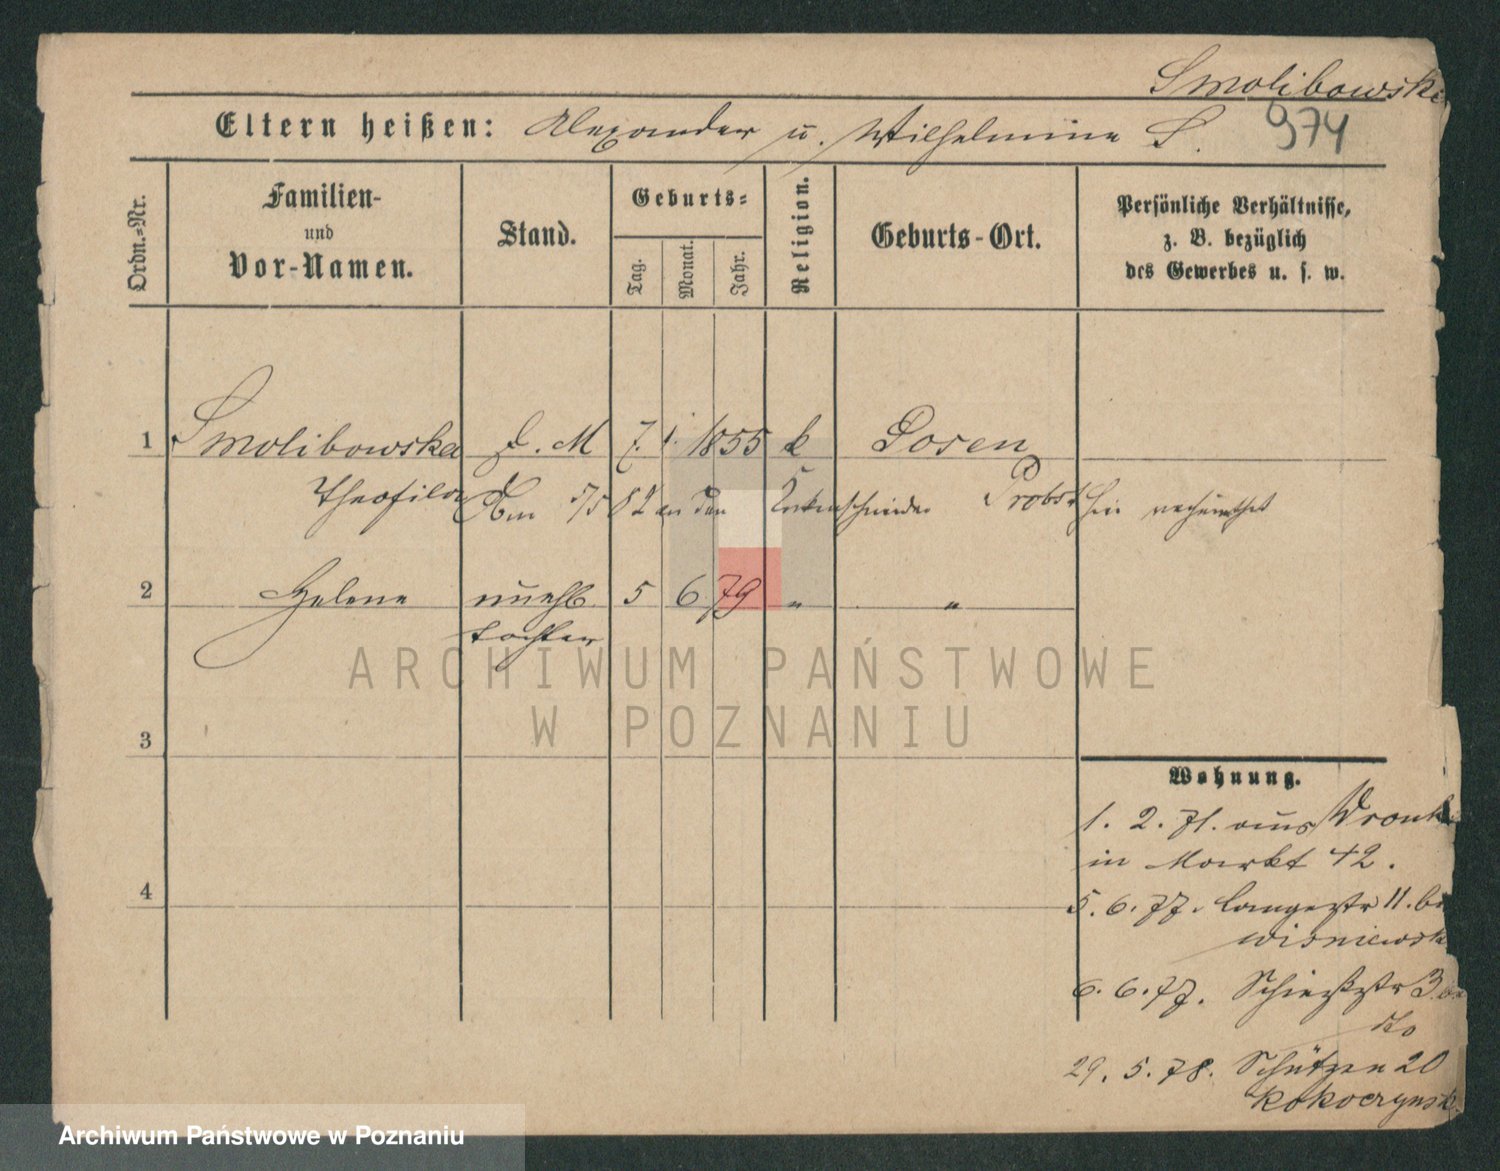 Smolibowska
Eltern heißen: Alexander u. Wilhelmine S.
974
Ordn.=Nr.
Familien-
und
Vor-Namen.
Stand.
Geburts=
Tag.
Monat.
Jahr.
Religion.
Geburts-Ort.
Persönliche Verhältnisse,
z. B. bezüglich
des Gewerbes u. s. w.
1 Smolibowska D. M 7. 1. 1855 k Posen
Theofila
Am 5/5 82 an den Probst hier verheirathet
2 Helene unehl 5 6 79 " "
tochter
3
4
Wohnung.
1. 2. 71. aus Wronk
in Markt 42.
5. 6. 77. Langestr 11. bei
Wisniewsk
6. 6. 77. Schießstr 3 bei
dto
29. 5. 78. Schützen 20
Kokoczynsk
ARCHIWUM PAŃSTWOWE
W POZNANIU
Archiwum Państwowe w Poznaniu